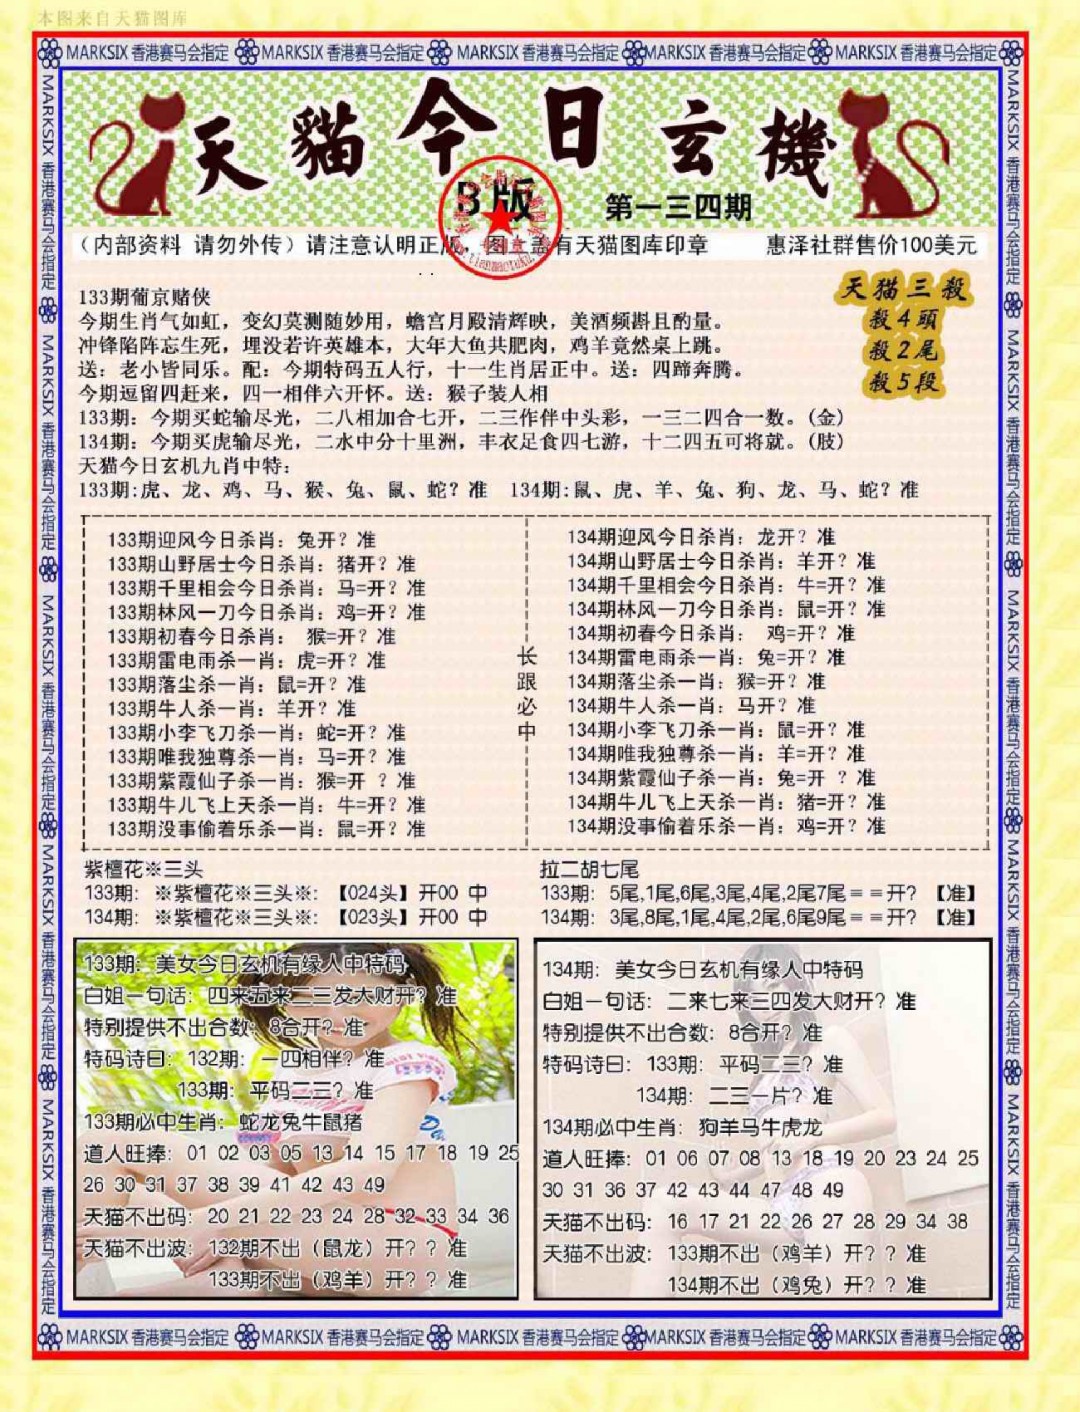 本图来自天猫图库
MARKSIX 香港赛马会指定 MARKSIX 香港赛马会指定 MARKSIX 香港赛马会指定 MARKSIX 香港赛马会指定 MARKSIX 香港赛马会指定
天貓今日玄機
B版
第一三四期
（内部资料 请勿外传）请注意认明正版，图上盖有天猫图库印章 惠泽社群售价100美元
天猫三殺
殺4頭
殺2尾
殺5段
133期葡京赌侠
今期生肖气如虹，变幻莫测随妙用，蟾宫月殿清辉映，美酒频斟且酌量。
冲锋陷阵忘生死，埋没若许英雄本，大年大鱼共肥肉，鸡羊竟然桌上跳。
送：老小皆同乐。配：今期特码五人行，十一生肖居正中。送：四蹄奔腾。
今期逗留四赶来，四一相伴六开怀。送：猴子装人相
133期：今期买蛇输尽光，二八相加合七开，二三作伴中头彩，一三二四合一数。（金）
134期：今期买虎输尽光，二水中分十里洲，丰衣足食四七游，十二四五可将就。（肢）
天猫今日玄机九肖中特：
133期:虎、龙、鸡、马、猴、兔、鼠、蛇？准 134期:鼠、虎、羊、兔、狗、龙、马、蛇？准
133期迎风今日杀肖：兔开？准
133期山野居士今日杀肖：猪开？准
133期千里相会今日杀肖：马=开？准
133期林风一刀今日杀肖：鸡=开？准
133期初春今日杀肖： 猴=开？准
133期雷电雨杀一肖：虎=开？准
133期落尘杀一肖：鼠=开？准
133期牛人杀一肖：羊开？准
133期小李飞刀杀一肖：蛇=开？准
133期唯我独尊杀一肖：马=开？准
133期紫霞仙子杀一肖：猴=开 ？准
133期牛儿飞上天杀一肖：牛=开？准
133期没事偷着乐杀一肖：鼠=开？准
长跟必中
134期迎风今日杀肖：龙开？准
134期山野居士今日杀肖：羊开？准
134期千里相会今日杀肖：牛=开？准
134期林风一刀今日杀肖：鼠=开？准
134期初春今日杀肖： 鸡=开？准
134期雷电雨杀一肖：兔=开？准
134期落尘杀一肖：猴=开？准
134期牛人杀一肖：马开？准
134期小李飞刀杀一肖：鼠=开？准
134期唯我独尊杀一肖：羊=开？准
134期紫霞仙子杀一肖：兔=开 ？准
134期牛儿飞上天杀一肖：猪=开？准
134期没事偷着乐杀一肖：鸡=开？准
紫檀花※三头
133期：※紫檀花※三头※：【024头】开00 中
134期：※紫檀花※三头※：【023头】开00 中
拉二胡七尾
133期：5尾,1尾,6尾,3尾,4尾,2尾7尾＝＝开？【准】
134期：3尾,8尾,1尾,4尾,2尾,6尾9尾＝＝开？【准】
133期：美女今日玄机有缘人中特码
白姐一句话：四来五来二三发大财开？准
特别提供不出合数：8合开？准
特码诗曰：132期：一四相伴？准
133期：平码二三？准
133期必中生肖：蛇龙兔牛鼠猪
道人旺捧：01 02 03 05 13 14 15 17 18 19 25
26 30 31 37 38 39 41 42 43 49
天猫不出码：20 21 22 23 24 28 32 33 34 36
天猫不出波：132期不出（鼠龙）开？？准
133期不出（鸡羊）开？？准
134期：美女今日玄机有缘人中特码
白姐一句话：二来七来三四发大财开？准
特别提供不出合数：8合开？准
特码诗曰：133期：平码二三？准
134期：二三一片？准
134期必中生肖：狗羊马牛虎龙
道人旺捧：01 06 07 08 13 18 19 20 23 24 25
30 31 36 37 42 43 44 47 48 49
天猫不出码：16 17 21 22 26 27 28 29 34 38
天猫不出波：133期不出（鸡羊）开？？准
134期不出（鸡兔）开？？准
MARKSIX 香港赛马会指定 MARKSIX 香港赛马会指定 MARKSIX 香港赛马会指定 MARKSIX 香港赛马会指定 MARKSIX 香港赛马会指定
MARKSIX 香港赛马会指定 MARKSIX 香港赛马会指定 MARKSIX 香港赛马会指定 MARKSIX 香港赛马会指定 MARKSIX 香港赛马会指定
MARKSIX 香港赛马会指定 MARKSIX 香港赛马会指定 MARKSIX 香港赛马会指定 MARKSIX 香港赛马会指定 MARKSIX 香港赛马会指定